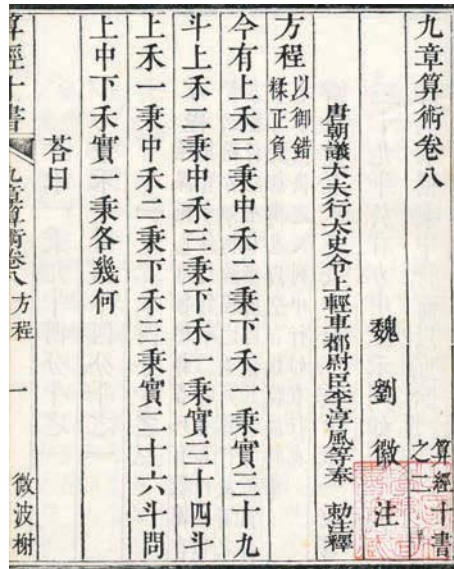 九章算術卷八 算經十書之二
魏 劉 徽 注
唐朝議大夫行太史令上輕車都尉臣李淳風等奉 勅注釋
方程 以御錯糅正負
今有上禾三秉中禾二秉下禾一秉實三十九
斗上禾二秉中禾三秉下禾一秉實三十四斗
上禾一秉中禾二秉下禾三秉實二十六斗問
上中下禾實一秉各幾何
荅曰
算經十書 九章算術卷八 方程 一 微波榭